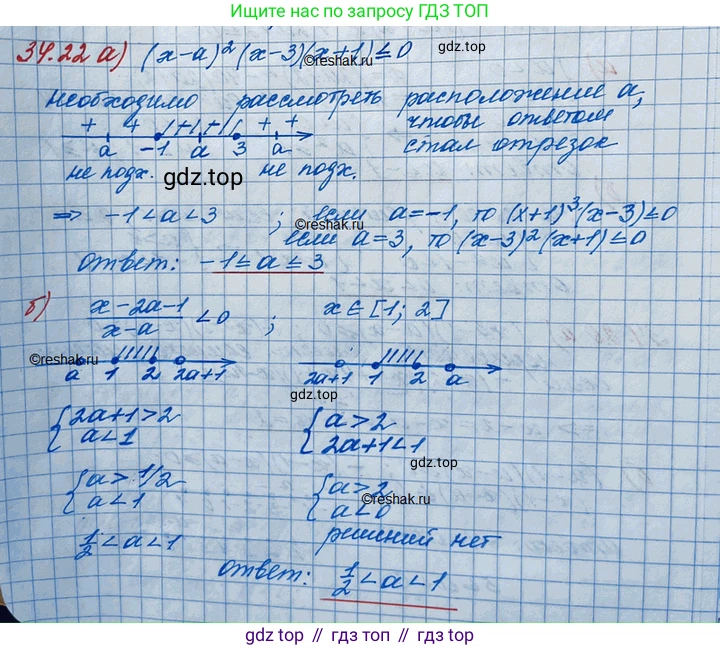 Ищите нас по запросу ГДЗ ТОП
34.22 а) (x-a)² (x-3)(x+1) ≤ 0
©reshak.ru
необходимо рассмотреть расположение a,
чтобы ответом
стал отрезок
+ + + + + +
a -1 a 3 a
не подх. не подх.
gdz.top
⇒ -1 < a < 3 ; если a=-1, то (x+1)³(x-3)≤0
©reshak.ru
если a=3, то (x-3)²(x+1)≤0
ответ: -1 ≤ a ≤ 3
б) x-2a-1 / x-a < 0 ; x ∈ [1; 2]
©reshak.ru
a 1 2 2a+1
2a+1 1 2 a
gdz.top
{ 2a+1 > 2
a < 1
{ a > 2
2a+1 < 1
©reshak.ru
{ a > 1/2
a < 1
{ a > 2
a < 0
©reshak.ru
1/2 < a < 1
решений нет
ответ: 1/2 < a < 1
gdz.top // гдз топ // gdz.top